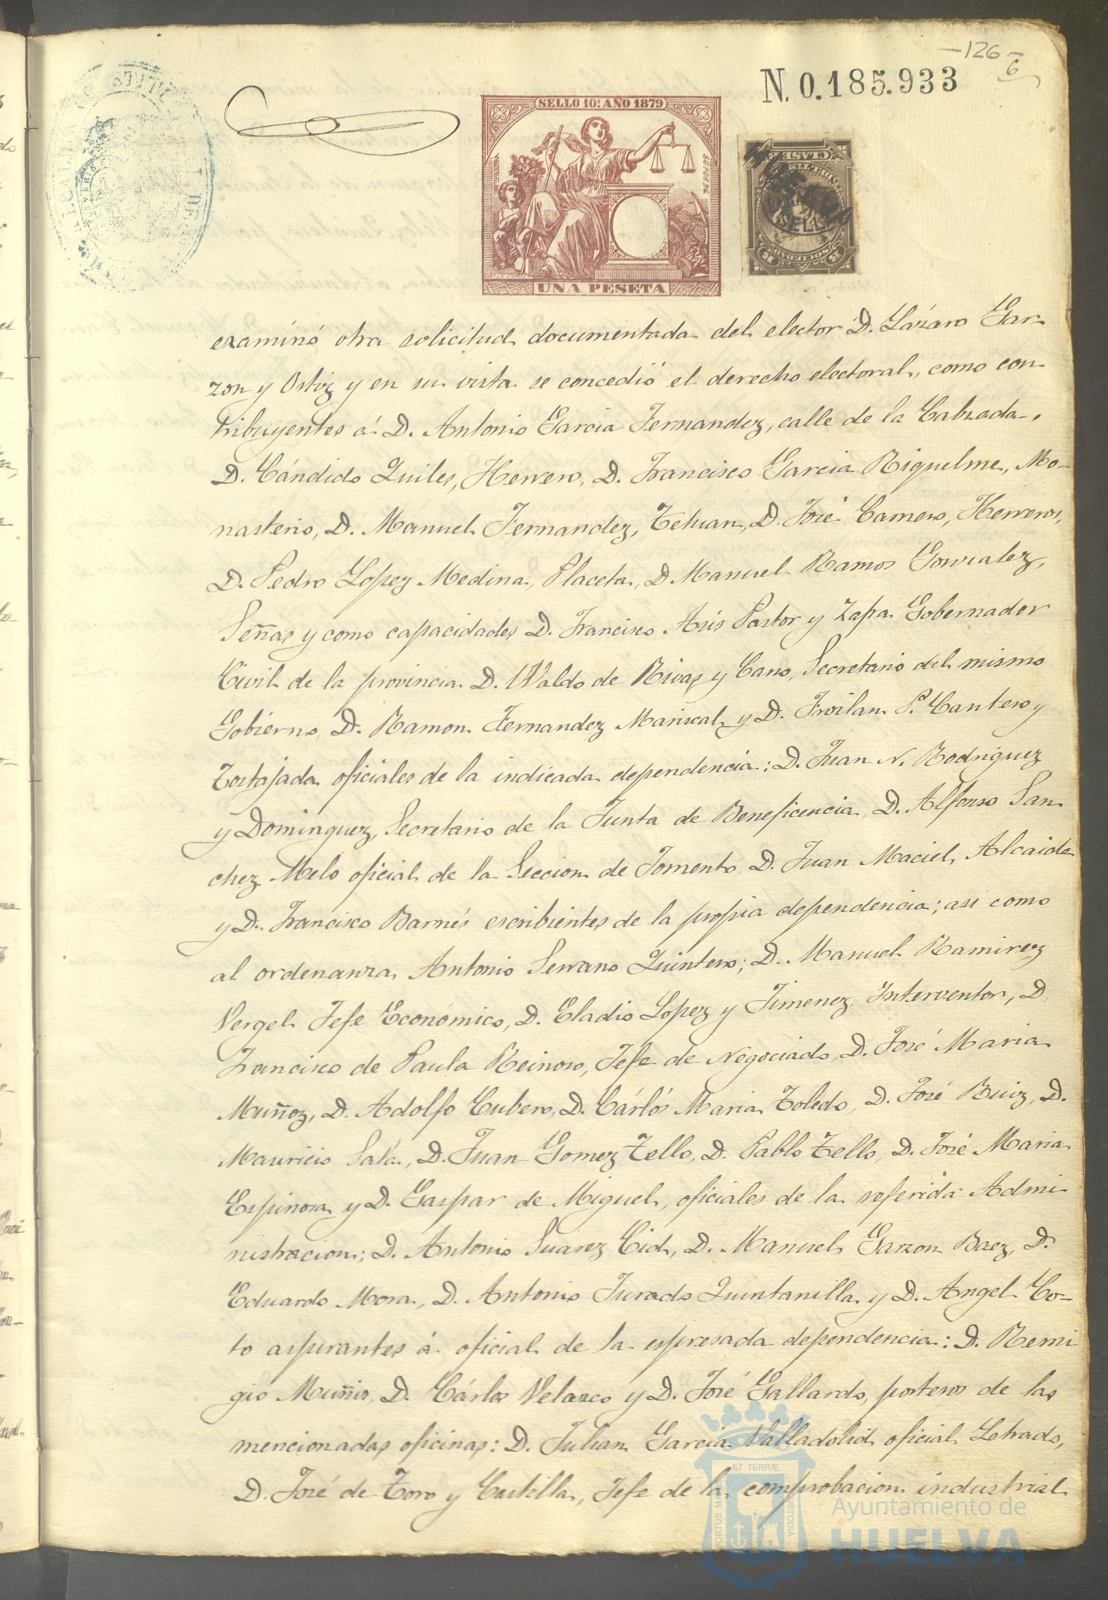 -126-
6
N. 0.185.933
SELLO 10º AÑO 1879
UNA PESETA
examinó otra solicitud documentada del elector D. Lázaro Gar-
zon y Ortiz y en su vista se concedió el derecho electoral, como con-
tribuyentes á D. Antonio Garcia Fernandez, calle de la Calzada,
D. Cándido Quiles, Herrero, D. Francisco Garcia Riquelme, Mo-
nasterio, D. Manuel Fernandez, Tetuan, D. José Camero, Herreros,
D. Pedro López Medina, Placeta, D. Manuel Ramos Gonzalez,
Señas y como capacidades D. Francisco Asis Pastor y Zapa Gobernador
Civil de la provincia D. Waldo de Rivas y Cano, Secretario del mismo
Gobierno, D. Ramon Fernandez Mariscal y D. Froilan P. Cantero y
Tortajada oficiales de la indicada dependencia: D. Juan N. Rodriguez
y Dominguez, Secretario de la Junta de Beneficencia, D. Alfonso San
chez Melo oficial de la Seccion de Fomento, D. Juan Maciel Alcaide
y D. Francisco Barnés escribientes de la propia dependencia; asi como
al ordenanza Antonio Serrano Quintero; D. Manuel Ramirez
Vergel Jefe Económico, D. Eladio Lopez y Jimenez Interventor, D.
Francisco de Paula Reinoso, Jefe de Negociado, D. José Maria
Muñoz, D. Adolfo Cubero, D. Cárlos Maria Toledo, D. José Ruiz, D.
Mauricio Sala, D. Juan Gomez Tello, D. Pablo Tello, D. José Maria
Espinosa y D. Gaspar de Miguel, oficiales de la referida Admi
nistracion; D. Antonio Suarez Cid, D. Manuel Garzon Baez, D.
Eduardo Mora, D. Antonio Jurado Quintanilla y D. Angel Co-
to aspirantes á oficial de la espresada dependencia: D. Remi
gio Muñiz, D. Cárlos Velazco y D. José Gallardo, porteros de las
mencionadas oficinas: D. Julian Garcia Valladolid oficial Letrado,
D. José de Toro y Castilla, Jefe de la comprobacion industrial
Ayuntamiento de
HUELVA